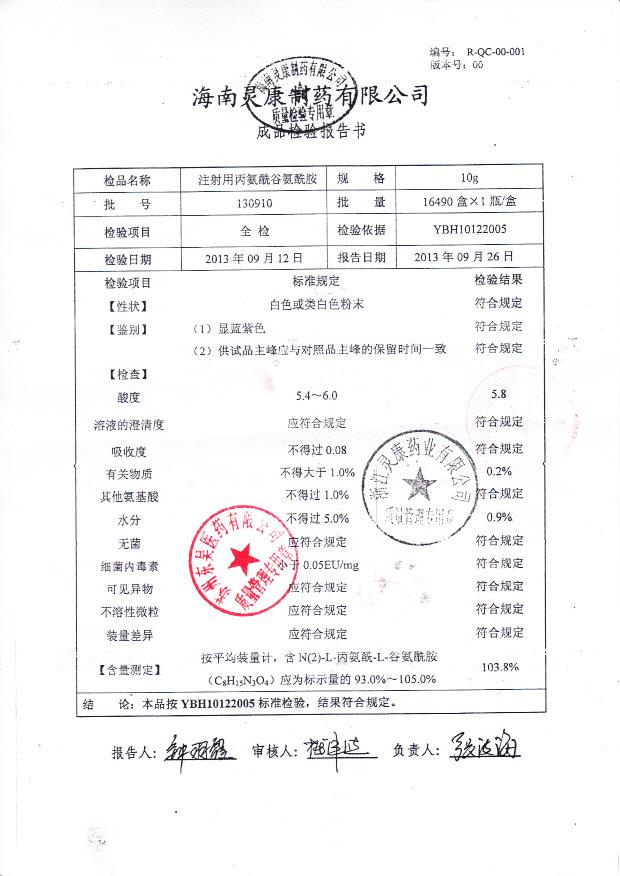 编号： R-QC-00-001
版本号：00
海南灵康制药有限公司
海南灵康制药有限公司
质量检验专用章
成品检验报告书
检品名称 注射用丙氨酰谷氨酰胺 规 格 10g
批 号 130910 批 量 16490 盒×1 瓶/盒
检验项目 全 检 检验依据 YBH10122005
检验日期 2013 年 09 月 12 日 报告日期 2013 年 09 月 26 日
检验项目 标准规定 检验结果
【性状】 白色或类白色粉末 符合规定
【鉴别】 （1）显蓝紫色 符合规定
（2）供试品主峰应与对照品主峰的保留时间一致 符合规定
【检查】
酸度 5.4～6.0 5.8
溶液的澄清度 应符合规定 符合规定
吸收度 不得过 0.08 符合规定
有关物质 不得大于 1.0% 0.2%
其他氨基酸 不得过 1.0% 符合规定
水分 不得过 5.0% 0.9%
无菌 应符合规定 符合规定
细菌内毒素 小于 0.05EU/mg 符合规定
可见异物 应符合规定 符合规定
不溶性微粒 应符合规定 符合规定
装量差异 应符合规定 符合规定
【含量测定】 按平均装量计，含 N(2)-L-丙氨酰-L-谷氨酰胺
（C₈H₁₅N₃O₄）应为标示量的 93.0%～105.0% 103.8%
浙江灵康药业有限公司
质量管理专用章
苏州东吴医药有限公司
质量管理专用章
结 论：本品按 YBH10122005 标准检验，结果符合规定。
报告人： 审核人： 负责人：